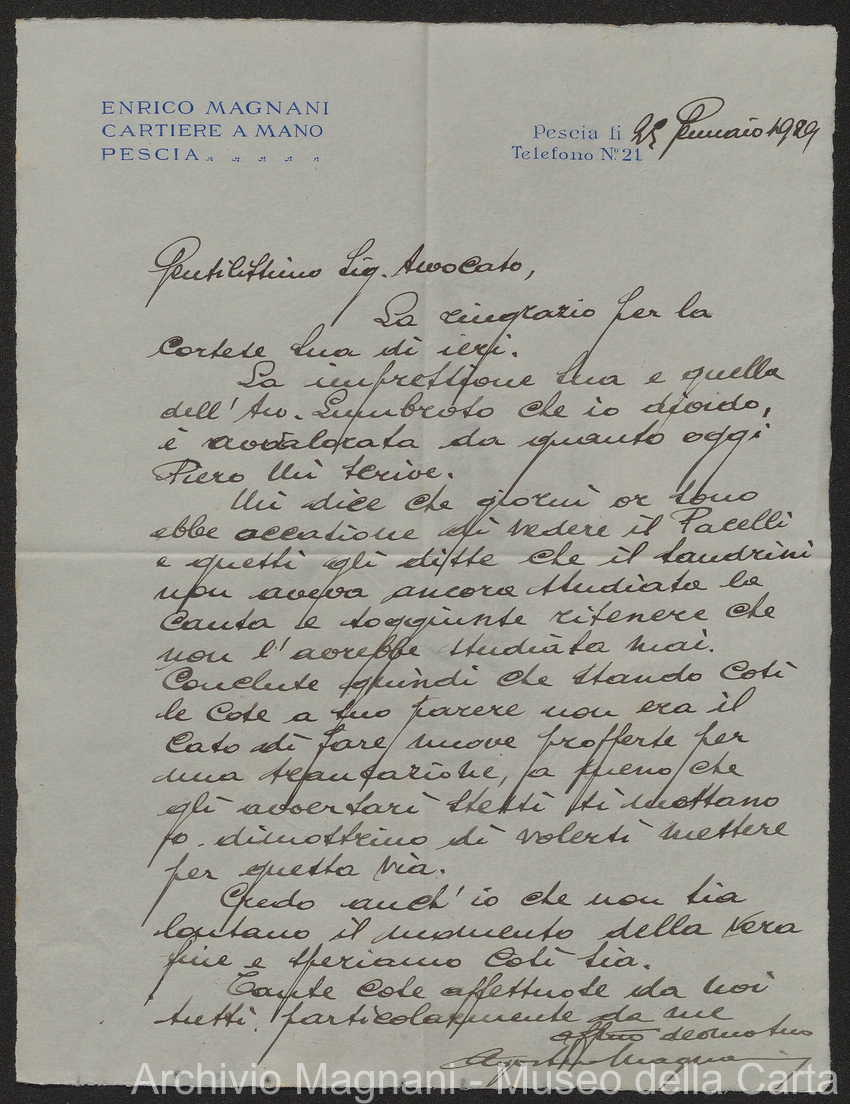 ENRICO MAGNANI
CARTIERE A MANO
PESCIA
Pescia li 25 Gennaio 1929
Telefono N.º 21
Gentilissimo Sig. Avvocato,
La ringrazio per la
cortese sua di ieri.
La impressione sua e quella
dell' Avv. Lumbroso che io divido,
è avvalorata da quanto oggi
Piero mi scrive.
Mi dice che giorni or sono
ebbe occasione di vedere il Pacelli
e questi gli disse che il Sandrini
non aveva ancora studiato la
causa e soggiunse ritenere che
non l' avrebbe studiata mai.
Concluse quindi che stando così
le cose a suo parere non era il
caso di fare nuove profferte per
una transazione, a meno che
gli avversari stessi si mettano
o dimostrino di volersi mettere
per questa via.
Credo anch' io che non sia
lontano il momento della vera
fine e speriamo così sia.
Tante cose affettuose da noi
tutti, particolarmente da me
affmo devmo suo
Magnani
Archivio Magnani - Museo della Carta